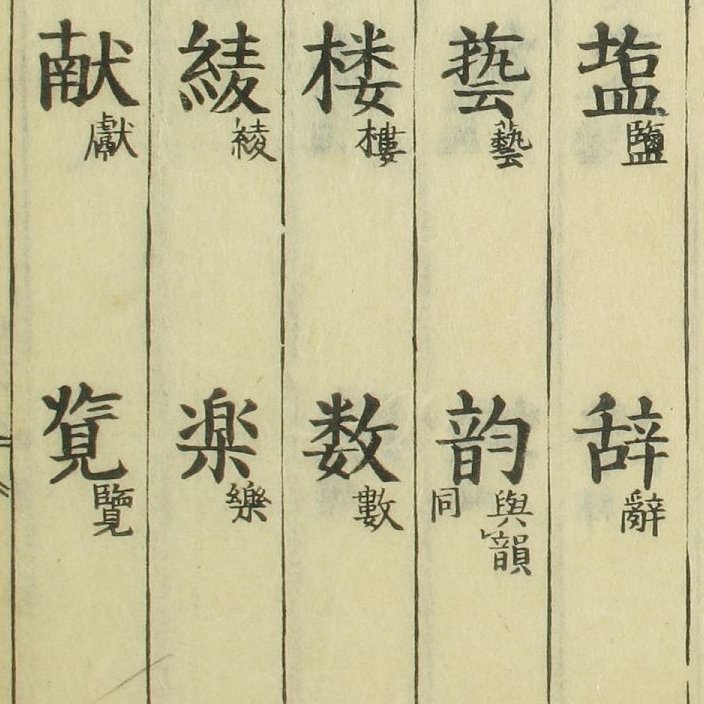 塩 鹽 辞 辭
藝 藝 韵 與韻同
楼 樓 数 數
綾 裬 楽 樂
献 獻 覧 覽